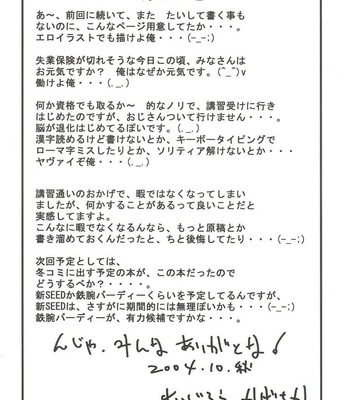 あ～、前回に続いて、また　たいして書く事も
ないのに、こんなページ用意してたか・・・。
エロイラストでも描けよ俺・・・(-_-;)
失業保険が切れそうな今日この頃、みなさんは
お元気ですか？　俺はなぜか元気です。(^_^)v
働けよ俺・・・(._.)
何か資格でも取るか～　的なノリで、講習受けに行き
はじめたのですが、おじさんついて行けません・・・。
脳が退化はじめてるぽいです。(._.)
漢字読めるけど書けないとか、キーボータイピングで
ローマ字ミスしたりとか、ソリティア解けないとか・・・
ヤヴァイぞ俺・・・(._.)
講習通いのおかげで、暇ではなくなってしまい
ましたが、何かすることがあるって良いことだと
実感してますよ。
こんなに暇でなくなるんなら、もっと原稿とか
書き溜めておくんだったと、ちと後悔してたり・・・(-_-;)
次回予定としては、
冬コミに出す予定の本が、この本だったので
どうするべか？・・・・。
新SEEDか鉄腕バーディーくらいを予定してるんですが、
新SEEDは、さすがに期間的には無理ぽいかも・・・(-_-;)
鉄腕バーディーが、有力候補ですかな・・・。
んじゃ、みんな ありがとな！
2004.10.